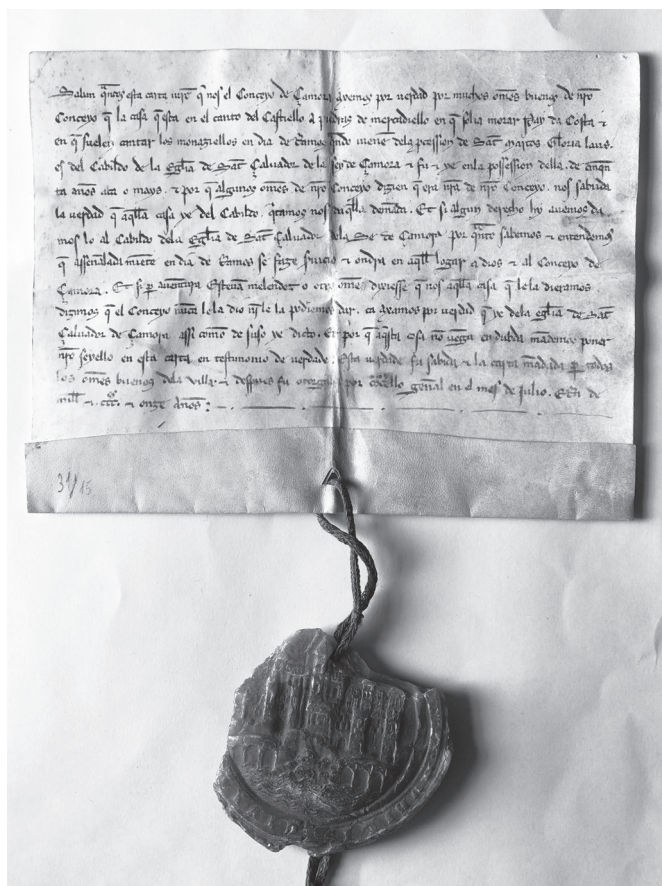 Saban q̃ntos esta carta uirẽ q̃ nos el Conceyo de Çamora auemos por uerdad por muchos omẽs buenos de nr̃o
Conceyo q̃ la casa q̃ esta en el canto del Castiello a de mercadiello en q̃ solia morar Ruy da Costa ⁊
en q̃ suelen cantar los monaziellos en dia de Ramos q̃ndo uienẽ dela pcession de Sãt Marcos. Gloria laus.
es del Cabildo de la Egl̃ia de Sãt Saluador de la see de Çamora ⁊ fu ⁊ ye enla possession della. de
ta anos aca o mays. ⁊ por q̃ algunos omẽs de nr̃o Conceyo dizien q̃ era nr̃a de nr̃o Conceyo. nos sabuda
la uerdad q̃ aq̃lla casa ye del Cabildo. q̃tamos nos daq̃lla demãda. Et si algun derecho hy auemos da
mos lo al Cabildo dela Egl̃ia de Sãt Saluador dela Se de Çamora. por q̃nto sabemos ⁊ entendemos
q̃ assennalada miẽte en dia de Ramos se faze seruicio ⁊ ondra en aq̃ll logar a dios ⁊ al Conceyo de
Çamora. Et si p auentura Esteuã melendez o otro omẽ dixiesse q̃ nos aq̃lla casa q̃ le la dieramos
dizimos q̃ el Conceyo nũca le la dio nj̃ le la podiemos dar. ca auamos por uerdad q̃ ye dela eglia de Sãt
Saluador de Çamora. assi como de suso ye dicto. Et por q̃ aq̃sta cosa nõ uẽga en dubda mãdemos poner
nr̃o seyello en esta carta en testimonio de uerdade. Esta uerdade fu sabuda ⁊ la carta mãdada p todos
los omẽs buenos dela villa. ⁊ despues fu otorgada por cõcello genãl en el mes de Julio. Erã de
mill ⁊ .CCC. ⁊ onze Anos.
31/15